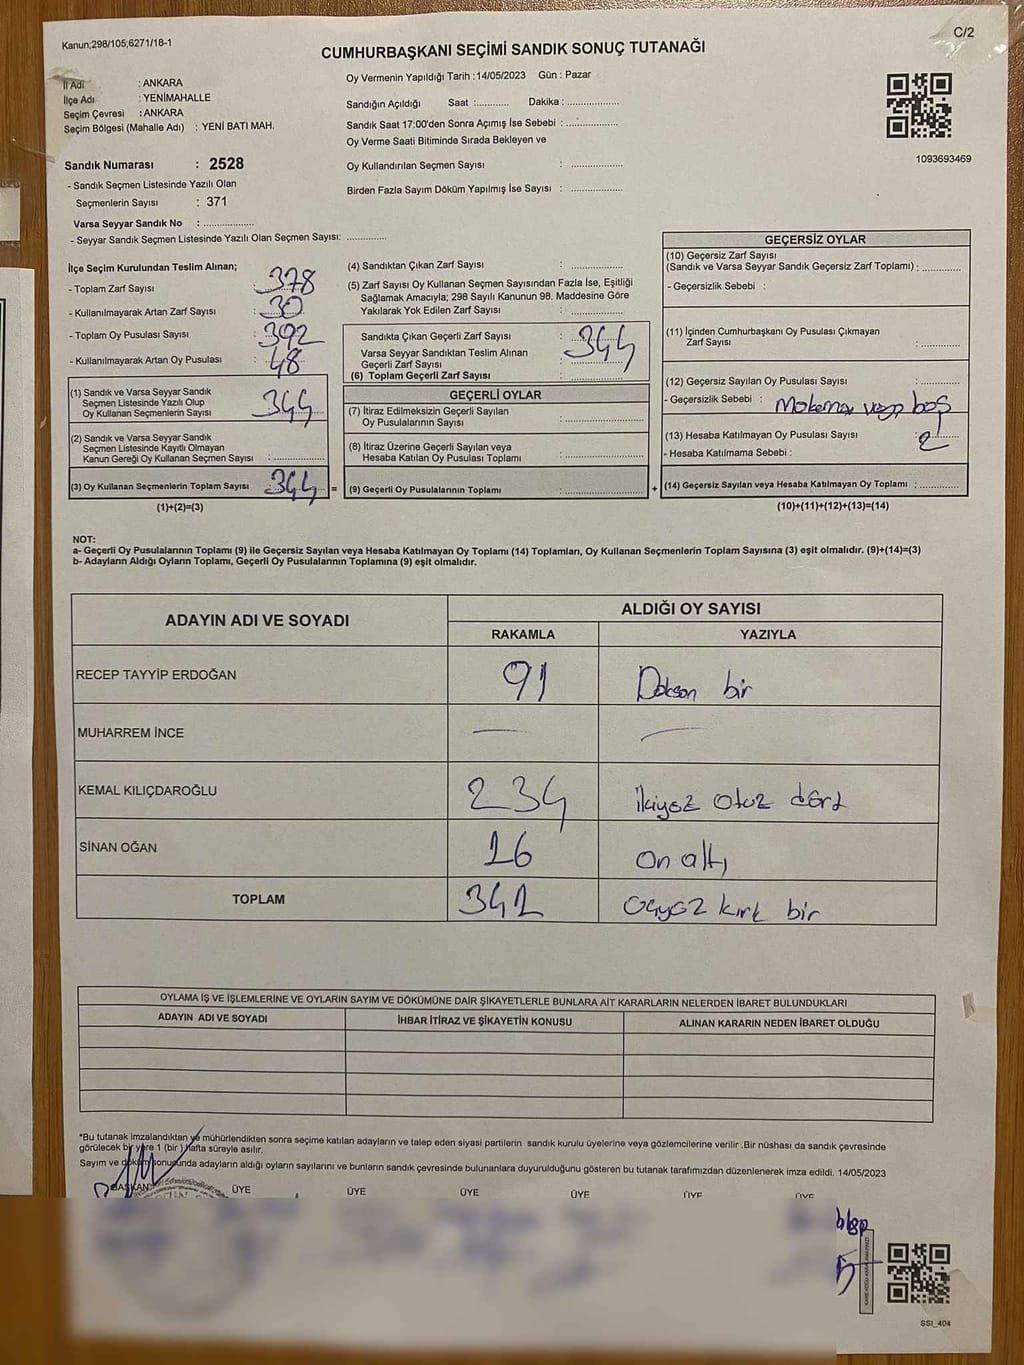 Kanun;298/105;6271/18-1
C/2
CUMHURBAŞKANI SEÇİMİ SANDIK SONUÇ TUTANAĞI
İl Adı : ANKARA
İlçe Adı : YENİMAHALLE
Seçim Çevresi : ANKARA
Seçim Bölgesi (Mahalle Adı) : YENİ BATI MAH.
Sandık Numarası : 2528
- Sandık Seçmen Listesinde Yazılı Olan
Seçmenlerin Sayısı : 371
Varsa Seyyar Sandık No : ..................
- Seyyar Sandık Seçmen Listesinde Yazılı Olan Seçmen Sayısı: ..............
Oy Vermenin Yapıldığı Tarih : 14/05/2023 Gün : Pazar
Sandığın Açıldığı Saat :........... Dakika : ..................
Sandık Saat 17:00'den Sonra Açımış İse Sebebi : ..................
Oy Verme Saati Bitiminde Sırada Bekleyen ve
Oy Kullandırılan Seçmen Sayısı : ..................
Birden Fazla Sayım Döküm Yapılmış İse Sayısı : ..................
1093693469
İlçe Seçim Kurulundan Teslim Alınan;
- Toplam Zarf Sayısı : 378
- Kullanılmayarak Artan Zarf Sayısı : 30
- Toplam Oy Pusulası Sayısı : 392
- Kullanılmayarak Artan Oy Pusulası : 48
(1) Sandık ve Varsa Seyyar Sandık
Seçmen Listesinde Yazılı Olup
Oy Kullanan Seçmenlerin Sayısı 344
(2) Sandık ve Varsa Seyyar Sandık
Seçmen Listesinde Kayıtlı Olmayan
Kanun Gereği Oy Kullanan Seçmen Sayısı : ..................
(3) Oy Kullanan Seçmenlerin Toplam Sayısı 344 =
(1)+(2)=(3)
(4) Sandıktan Çıkan Zarf Sayısı : ..................
(5) Zarf Sayısı Oy Kullanan Seçmen Sayısından Fazla İse, Eşitliği
Sağlamak Amacıyla; 298 Sayılı Kanunun 98. Maddesine Göre
Yakılarak Yok Edilen Zarf Sayısı : ..................
Sandıkta Çıkan Geçerli Zarf Sayısı : 344
Varsa Seyyar Sandıktan Teslim Alınan
Geçerli Zarf Sayısı :
(6) Toplam Geçerli Zarf Sayısı : ..................
GEÇERLİ OYLAR
(7) İtiraz Edilmeksizin Geçerli Sayılan
Oy Pusulalarının Sayısı : ..................
(8) İtiraz Üzerine Geçerli Sayılan veya
Hesaba Katılan Oy Pusulası Toplamı : ..................
(9) Geçerli Oy Pusulalarının Toplamı : .................. +
GEÇERSİZ OYLAR
(10) Geçersiz Zarf Sayısı
(Sandık ve Varsa Seyyar Sandık Geçersiz Zarf Toplamı) : ..............
- Geçersizlik Sebebi :
(11) İçinden Cumhurbaşkanı Oy Pusulası Çıkmayan
Zarf Sayısı : ..............
(12) Geçersiz Sayılan Oy Pusulası Sayısı : ..............
- Geçersizlik Sebebi : boş
(13) Hesaba Katılmayan Oy Pusulası Sayısı : 2
- Hesaba Katılmama Sebebi :
(14) Geçersiz Sayılan veya Hesaba Katılmayan Oy Toplamı : ..............
(10)+(11)+(12)+(13)=(14)
NOT:
a- Geçerli Oy Pusulalarının Toplamı (9) ile Geçersiz Sayılan veya Hesaba Katılmayan Oy Toplamı (14) Toplamları, Oy Kullanan Seçmenlerin Toplam Sayısına (3) eşit olmalıdır. (9)+(14)=(3)
b- Adayların Aldığı Oyların Toplamı, Geçerli Oy Pusulalarının Toplamına (9) eşit olmalıdır.
ADAYIN ADI VE SOYADI
ALDIĞI OY SAYISI
RAKAMLA YAZIYLA
RECEP TAYYİP ERDOĞAN 91 Doksan bir
MUHARREM İNCE — —
KEMAL KILIÇDAROĞLU 234 ikiyüz otuz dört
SİNAN OĞAN 16 on altı
TOPLAM 341 üçyüz kırk bir
OYLAMA İŞ VE İŞLEMLERİNE VE OYLARIN SAYIM VE DÖKÜMÜNE DAİR ŞİKAYETLERLE BUNLARA AİT KARARLARIN NELERDEN İBARET BULUNDUKLARI
ADAYIN ADI VE SOYADI İHBAR İTİRAZ VE ŞİKAYETİN KONUSU ALINAN KARARIN NEDEN İBARET OLDUĞU
*Bu tutanak imzalandıktan ve mühürlendikten sonra seçime katılan adayların ve talep eden siyasi partilerin sandık kurulu üyelerine veya gözlemcilerine verilir .Bir nüshası da sandık çevresinde
görülecek bir yere 1 (bir) hafta süreyle asılır.
Sayım ve döküm sonucunda adayların aldığı oyların sayılarını ve bunların sandık çevresinde bulunanlara duyurulduğunu gösteren bu tutanak tarafımızdan düzenlenerek imza edildi. 14/05/2023
BAŞKAN ÜYE ÜYE ÜYE ÜYE ÜYE ÜYE
SSI_404